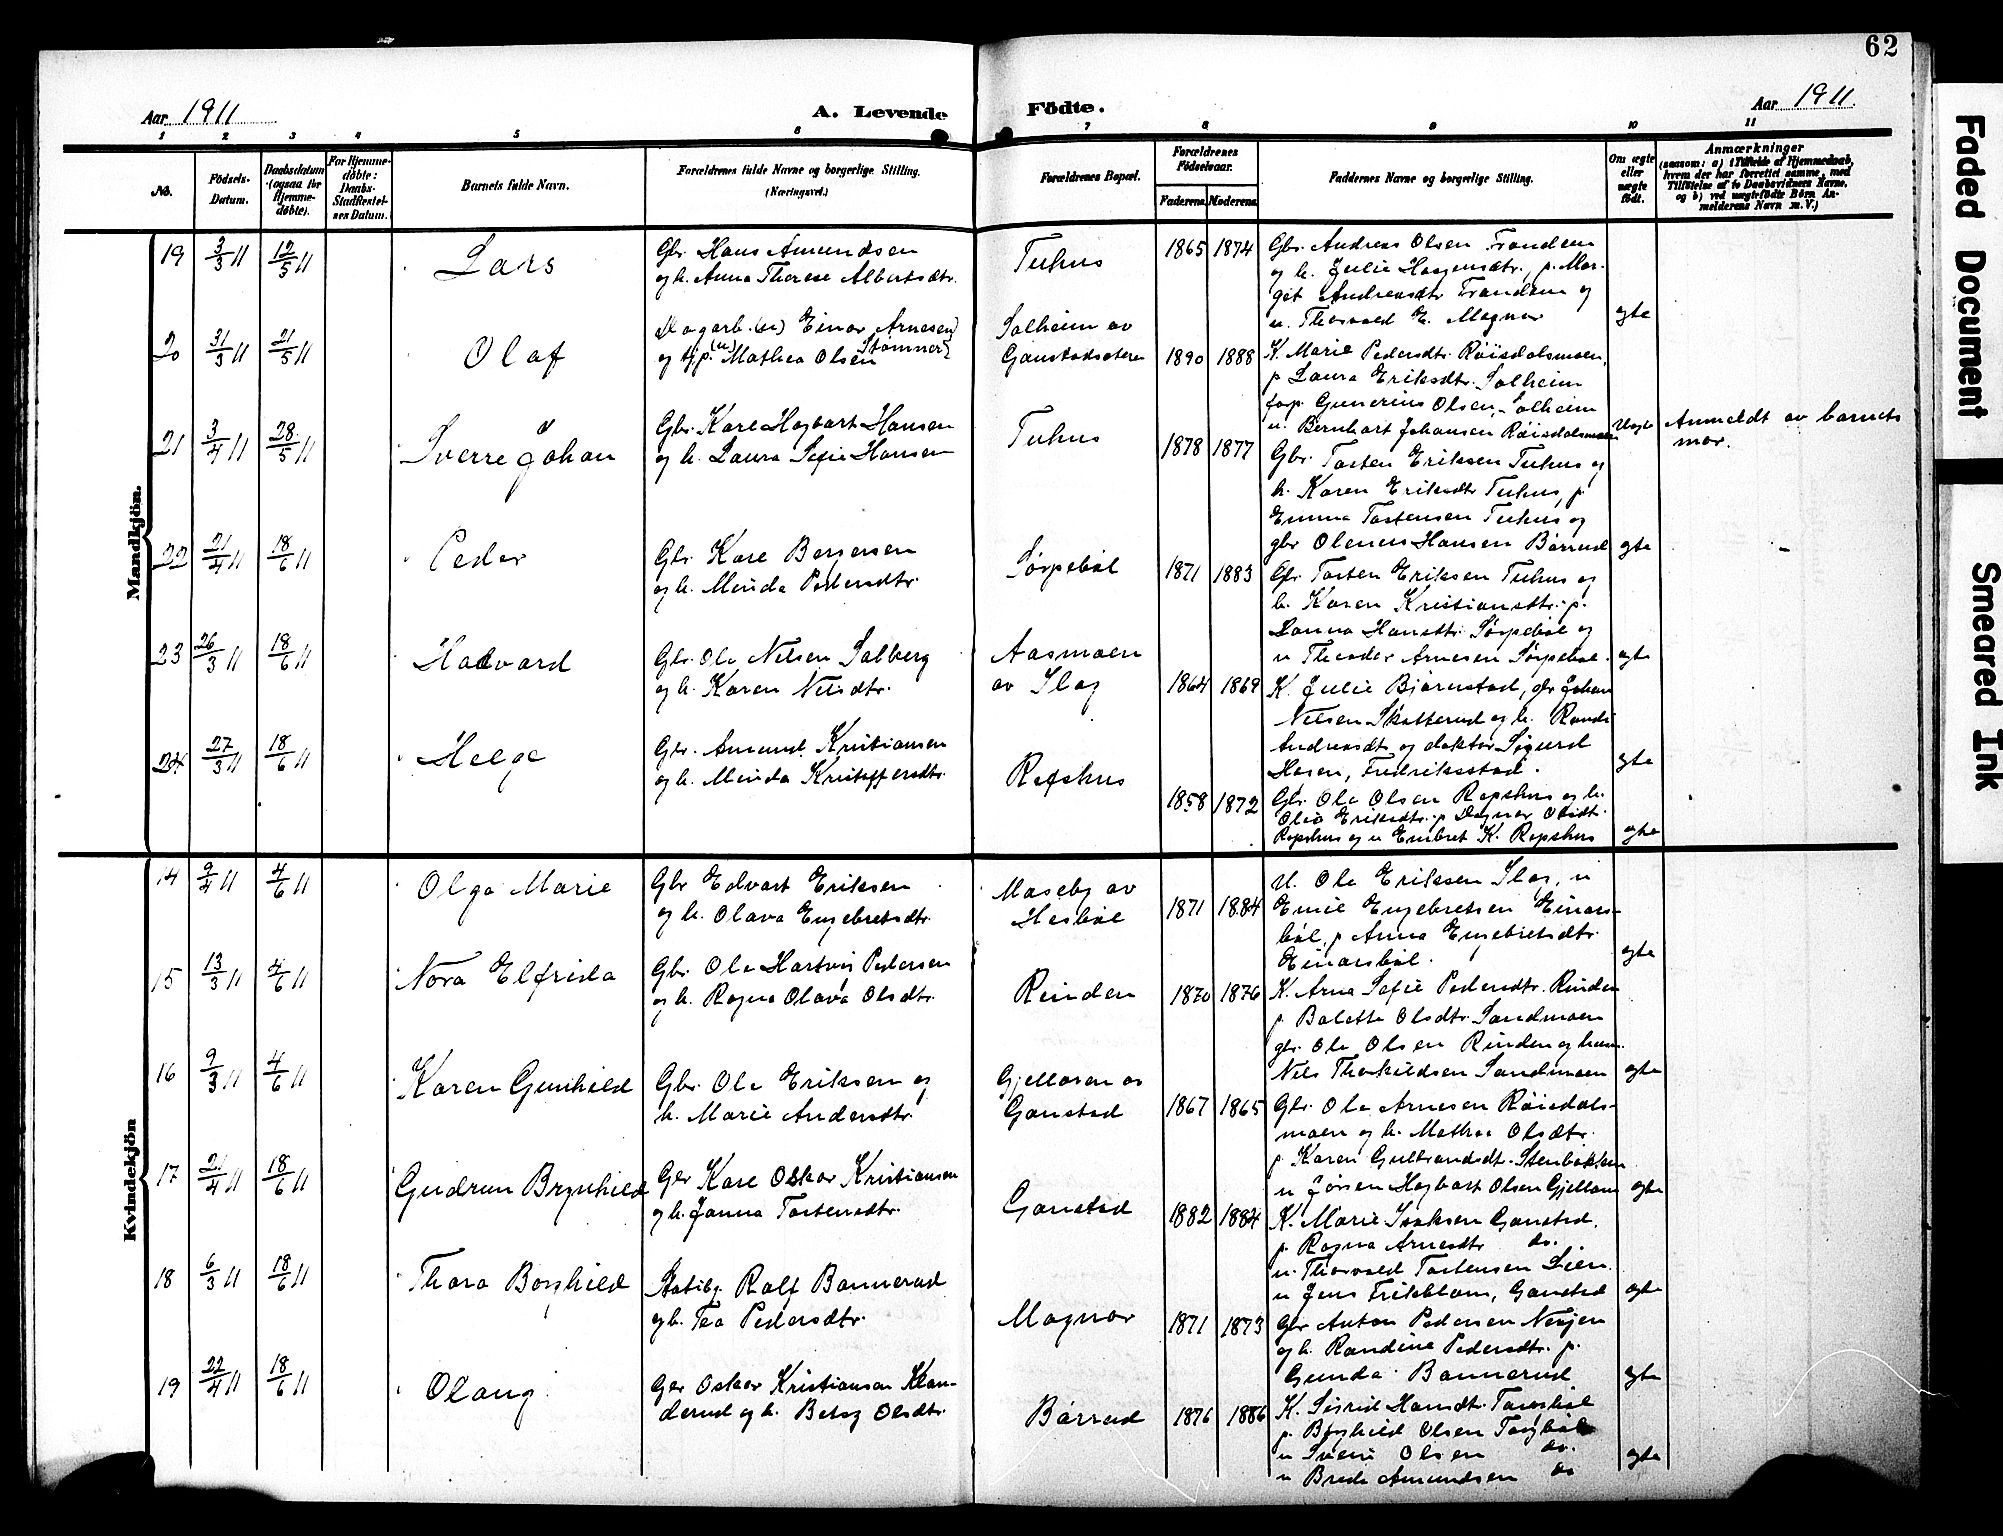 62
Aar 1911
A. Levende
Födte.
Aar 1911.
1 2 3 4 5 6 7 8 9 10 11
No.
Födsels-
Datum.
Daabsdatum
(ogsaa for
Hjemme-
døbte).
For Hjemme-
døbte:
Daabs-
Stadfæstel-
ses Datum.
Barnets fulde Navn.
Forældrenes fulde Navne og borgerlige Stilling.
(Næringsvei.)
Forældrenes Bopæl.
Forældrenes
Födselsaar.
Faderens. Moderens.
Faddernes Navne og borgerlige Stilling.
Om ægte
eller
uægte
födt.
Anmærkninger
(saasom: a) i Tilfælde af Hjemmedaab,
hvem der har forrettet samme, med
Tilföielse af to Daabsvidners Navne,
og b) ved uægtefödte Börn An-
melderens Navn m. V.)
Mandkjön.
19 3/3 11 12/5 11 Lars
Gbr. Hans Amundsen
og h. Anna Therese Albertsdtr.
Tuhus 1865 1874
Gbr. Andreas Olsen Trandem
og h. Julie Haagensdtr., p. Mar-
git Andreasdtr Trandem og
u. Thorvald E. Magnor ægte
20 31/3 11 21/5 11 Olaf
Dagarb. (u) Einar Arnesen
Stømner
og tjp. (u) Mathea Olsen
Solheim av
Gaustadsæteren 1890 1888
K. Marie Pedersdtr. Røisdalsmoen,
p Laura Eriksdtr. Solheim
forp. Gunerius Olsen Solheim
u. Bernhart Johansen Røisdalsmoen Uægte
Anmeldt av barnets
mor.
21 3/4 11 28/5 11 Sverre Johan
Gbr. Karl Hagbart Hansen
og h. Laura Sofie Hansen
Tuhus 1878 1877
Gbr. Tosten Eriksen Tuhus og
h. Karen Eriksdtr Tuhus, p
Emma Tostensen Tuhus og
gbr Olenus Hansen Børrud ægte
22 21/4 11 18/6 11 Peder
Gbr. Karl Bersersen
og h. Minda Pedersdtr.
Sørpebøl 1871 1883
Gbr. Tosten Eriksen Tuhus og
h. Karen Kristiansdtr. p.
Hansdtr. Sørpebøl og
u Theodor Arnesen Sørpebøl. ægte
23 26/3 11 18/6 11 Hallvard
Gbr. Ole Nilsen Solberg
og h. Karen Nilsdtr.
Aasmoen
av Slag 1864 1869
K. Julie Bjørnstad, gbr Johan
Nilsen Skotterud og h. Randi
Andreasdtr og doktor Sigurd
Hasen, Fredriksstad. ægte
24 27/3 11 18/6 11 Helge
Gbr. Amund Kristiansen
og h. Minda Kristoffersdtr.
Refshus 1858 1872
Gbr. Ole Olsen Repshus og h.
Olea Eriksdtr. p Dagnar Olsdtr.
Repshus og u Embret K. Repshus ægte
Kvindekjön
14 9/4 11 4/6 11 Olga Marie
Gbr Edvart Eriksen
og h. Olava Engebretsdtr.
Maseby av
Hesbøl 1871 1884
U. Ole Eriksen Slag, u
Emil Engebretsen Einars-
bøl, p Anna Engebretsdtr.
Einarsbøl. ægte
15 13/3 11 4/6 11 Nora Elfrida
Gbr. Ole Hartvig Pedersen
og h. Ragna Olava Olsdtr.
Rinden 1870 1876
K. Arna Sofie Pedersdtr. Rinden
p Bolette Olsdtr. Sandmoen
gbr. Ole Olsen Rinden og
Nils Thorkildsen Sandmoen ægte
16 9/3 11 4/6 11 Karen Gunhild
Gbr. Ole Eriksen og
h. Marie Andersdtr.
Gjellaasen av
Gaustad 1867 1865
Gbr. Ole Arnesen Røisdals-
moen og h. Mathea Olsdtr.
p Karen Gulbrandsdtr. Stenbækken
u Jørgen Hagbart Olsen Gjellaas ægte
17 21/4 11 18/6 11 Gudrun Brynhild
Gbr Karl Oskar Kristiansen
og h. Janna Tostensdtr.
Gaustad 1882 1884
K. Marie Isaksen Gaustad,
p. Ragna Arnesdtr do.
u. Thorvald Tostensen Lien.
u Jens Frikblom, Gaustad ægte
18 6/3 11 18/6 11 Thora Borghild
Rolf Bannerud
og h. Tea Pedersdtr.
Magnor 1871 1873
Gbr Anton Pedersen
og h. Randine Pedersdtr. p.
Gunda Bannerud ægte
19 22/4 11 18/6 11 Olaug
Gbr Oskar Kristiansen Klan-
derud og h. Betsy Olsdtr.
Børrud 1876 1886
K. Sigrid Hansdtr. Tangbøl
p Borghild Olsen Tangbøl
u Svein Olsen do.
u Brede Amundsen do ægte
Faded Document
Smeared Ink